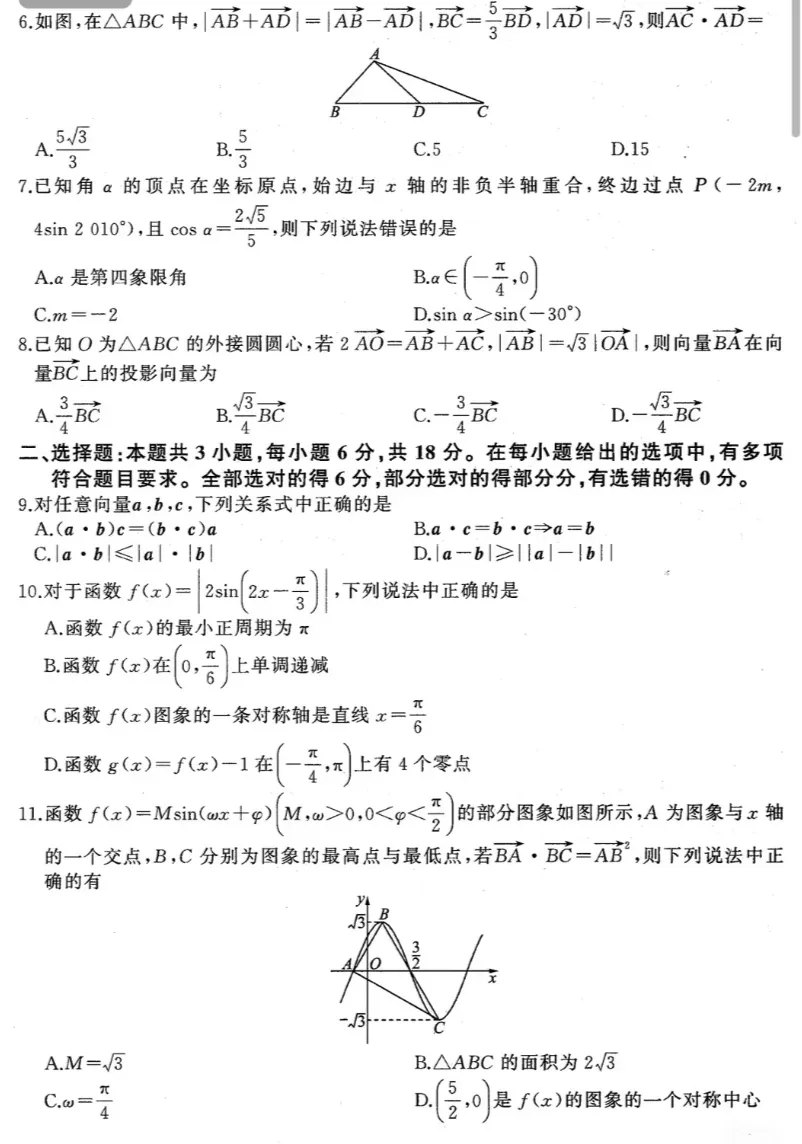 6.如图,在△ABC 中,|AB→+AD→|=|AB→−AD→|,BC→=5/3 BD→,|AD→|=√3,则AC→·AD→=
A
B D C
A. 5√3/3 B. 5/3 C.5 D.15
7.已知角 α 的顶点在坐标原点,始边与 x 轴的非负半轴重合,终边过点 P(−2m,
4sin 2 010°),且 cos α=2√5/5,则下列说法错误的是
A.α 是第四象限角 B.α∈(−π/4,0)
C.m=−2 D.sin α>sin(−30°)
8.已知 O 为△ABC 的外接圆圆心,若 2 AO→=AB→+AC→,|AB→|=√3|OA→|,则向量BA→在向
量BC→上的投影向量为
A. 3/4 BC→ B. √3/4 BC→ C.−3/4 BC→ D.−√3/4 BC→
二、选择题:本题共 3 小题,每小题 6 分,共 18 分。在每小题给出的选项中,有多项
符合题目要求。全部选对的得 6 分,部分选对的得部分分,有选错的得 0 分。
9.对任意向量a,b,c,下列关系式中正确的是
A.(a·b)c=(b·c)a B.a·c=b·c⇒a=b
C.|a·b|≤|a|·|b| D.|a−b|≥||a|−|b||
10.对于函数 f(x)=|2sin(2x−π/3)|,下列说法中正确的是
A.函数 f(x)的最小正周期为 π
B.函数 f(x)在(0,π/6)上单调递减
C.函数 f(x)图象的一条对称轴是直线 x=π/6
D.函数 g(x)=f(x)−1 在(−π/4,π)上有 4 个零点
11.函数 f(x)=Msin(ωx+φ)(M,ω>0,0<φ<π/2)的部分图象如图所示,A 为图象与 x 轴
的一个交点,B,C 分别为图象的最高点与最低点,若BA→·BC→=AB→²,则下列说法中正
确的有
y
√3 B
A O 3/2 x
−√3 C
A.M=√3 B.△ABC 的面积为 2√3
C.ω=π/4 D.(5/2,0)是 f(x)的图象的一个对称中心